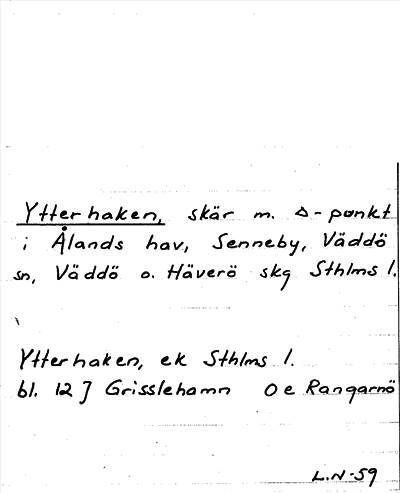 Ytterhaken, skär m. △-punkt
i Ålands hav, Senneby, Väddö
sn, Väddö o. Häverö skg Sthlms l.
Ytterhaken, ek Sthlms l.
bl. 12 J Grisslehamn O e Rangarnö
L.N-59